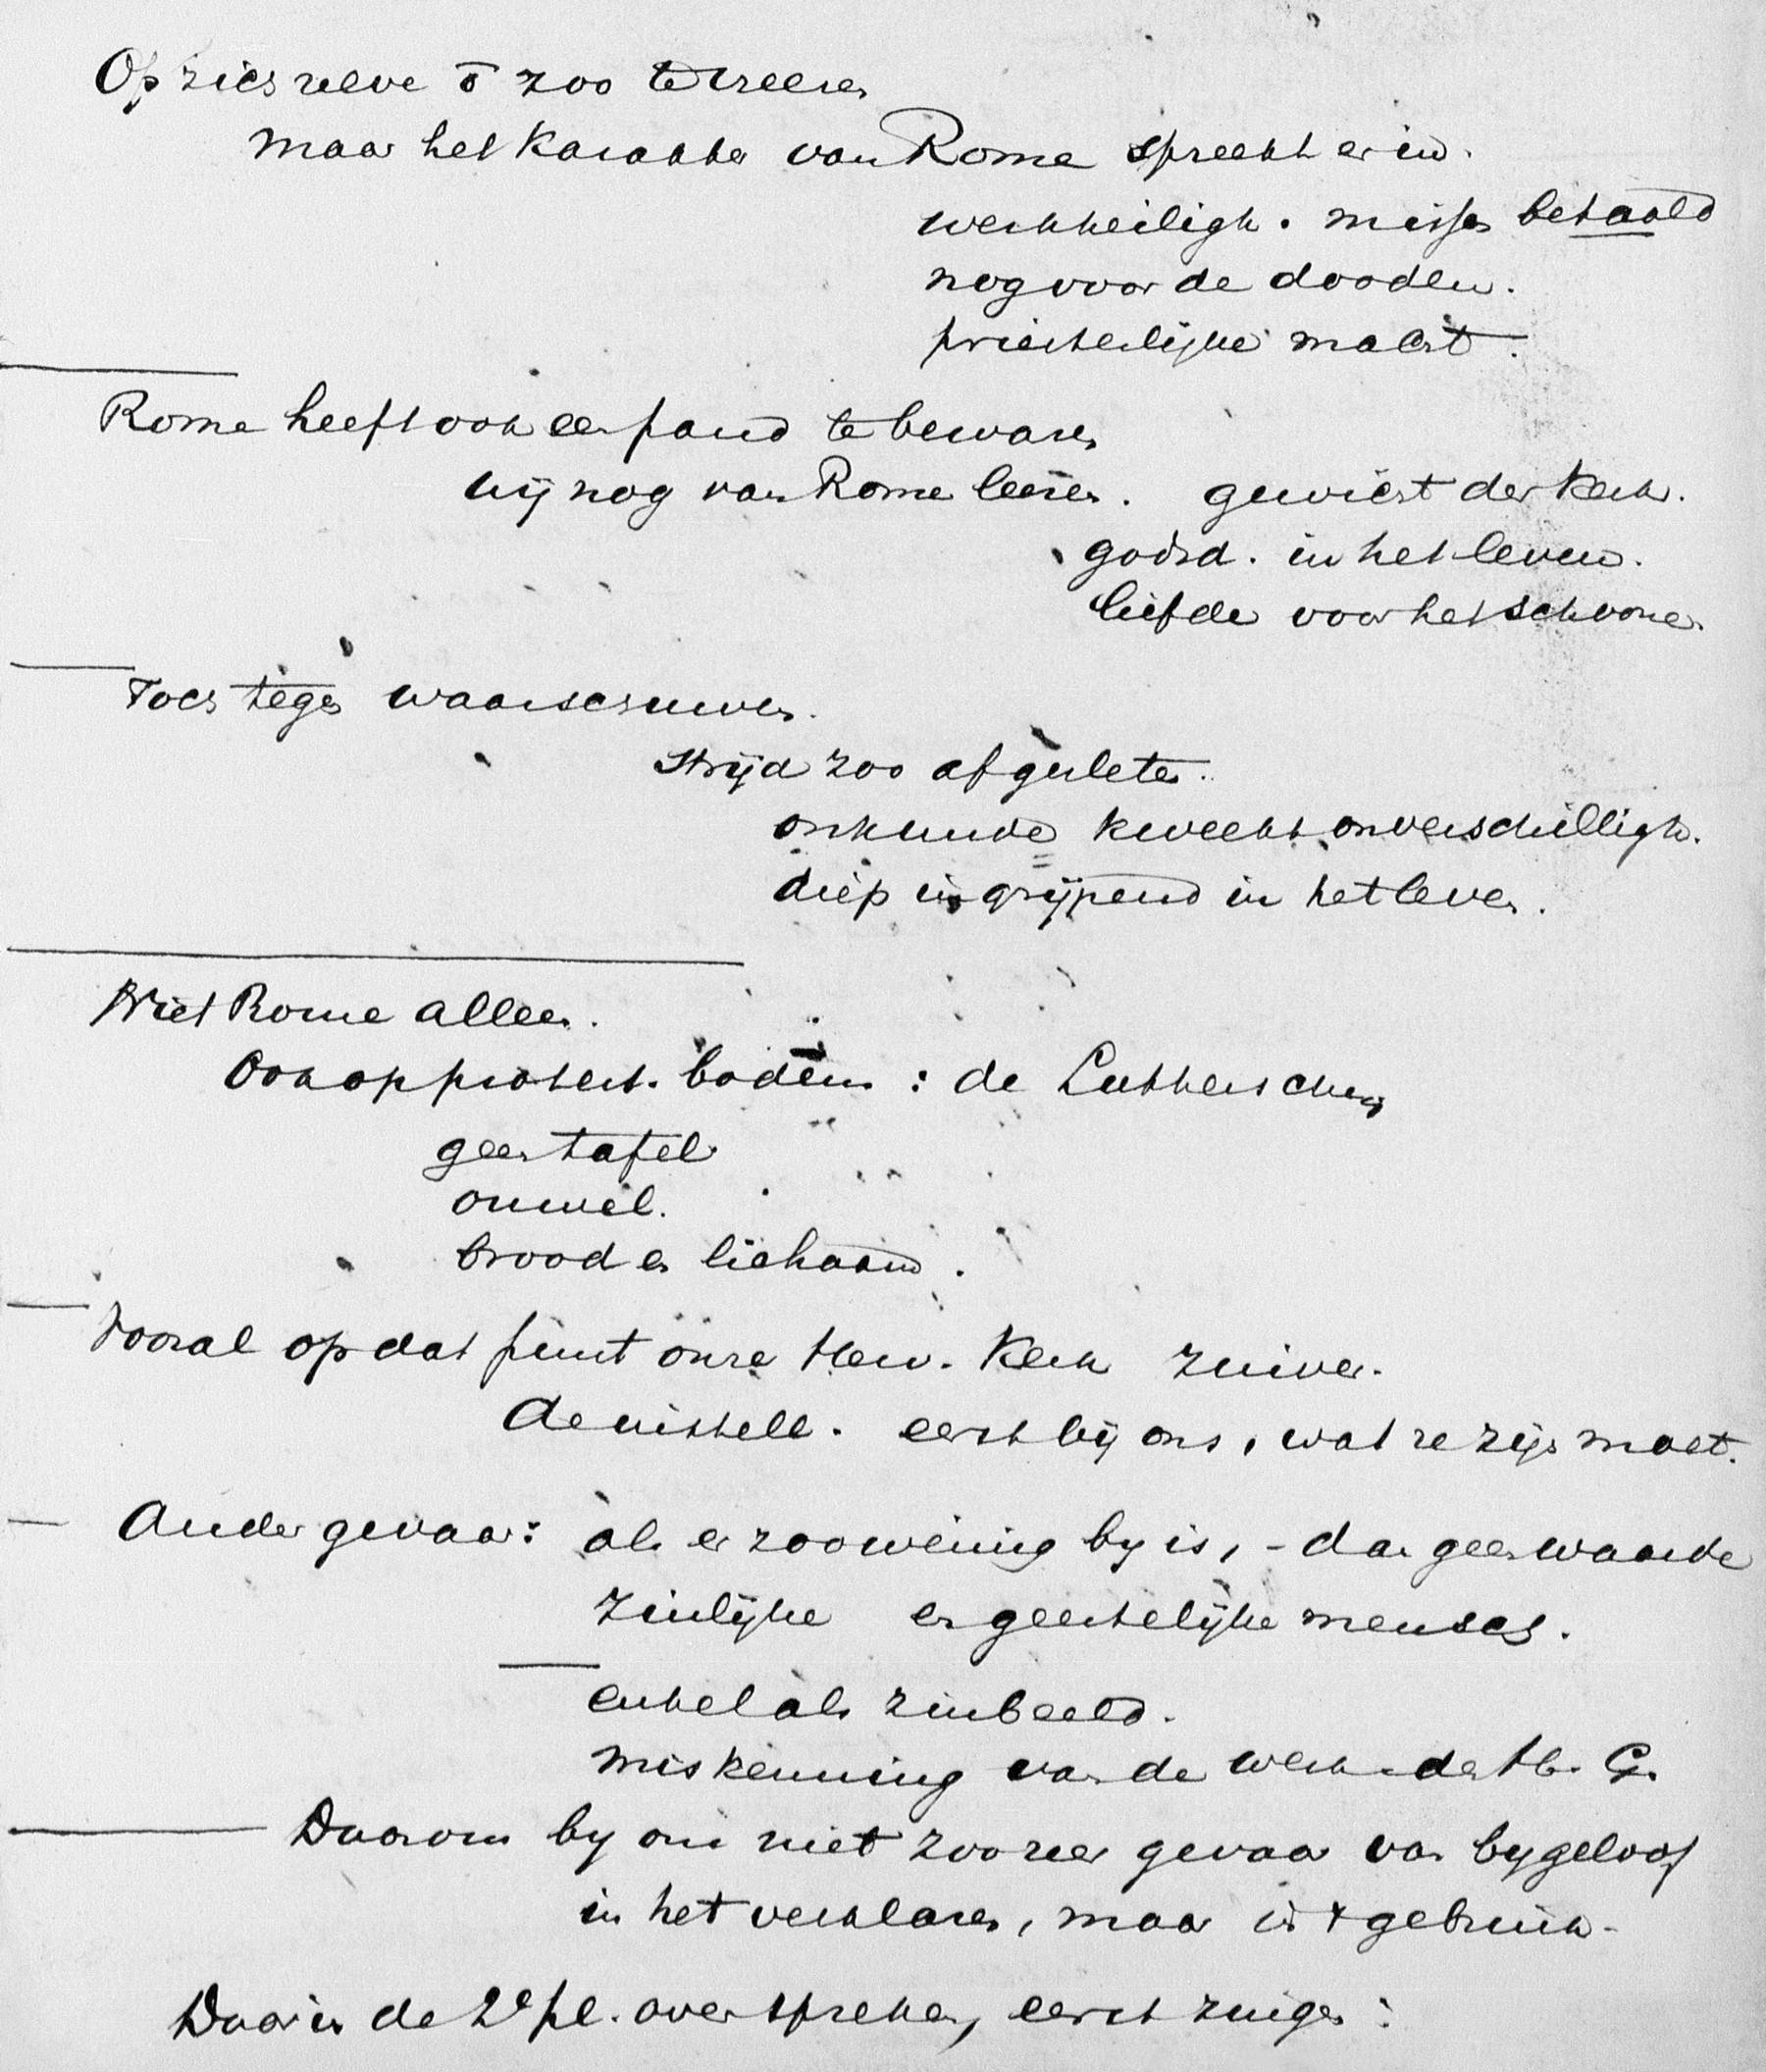 Op zich zelve ō zoo te vreezen
maar het karakter van Rome spreekt er in.
werkheiligh. missen betaald
nog voor de dooden.
priesterlijke macht.
Rome heeft ook een pand te bewaren
wij nog van Rome leeren. gewicht der Kerk.
godsd. in het leven.
liefde voor het schoone.
Toch tegen waarschuwen.
strijd zoo afgesleten.
onkunde kweekt onverschilligh.
diep ingrijpend in het leven.
Niet Rome alleen.
Ook op protest. bodem: de Lutherschen
geen tafel
ouwel.
brood en lichaam.
Vooral op dat punt onze Herv. Kerk zuiver.
Avondm. eerst bij ons, wat ze zijn moet.
Ander gevaar: als er zoo weinig bij is, - dan geen waarde
zinlijke en geestelijke mensch.
enkel als zinbeeld.
miskenning van de werk. der H. G.
Daarom by ons niet zoo zeer gevaar van bygeloof
in het verklaren, maar in 't gebruik.
Daar in de 2e pl. over spreken, eerst zingen: